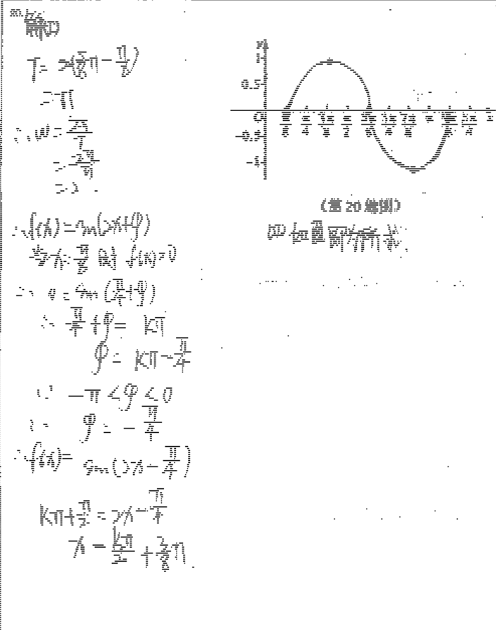 20.
解(1)
T=2(5/8π-π/8)
=π
∴w=2π/T
=2π/π
=2.
∴f(x)=sin(2x+φ)
当x=π/8时 f(x)=0
∴0=sin(π/4+φ)
∴π/4+φ=kπ
φ=kπ-π/4
∵-π<φ<0
∴φ=-π/4
∴f(x)=sin(2x-π/4)
kπ+π/2=2x-π/4
x=kπ/2+3/8π.
y
1
0.5
O
-0.5
-1
π/8 π/4 3π/8 π/2 5π/8 3π/4 7π/8 π 9π/8 5π/4 x
(第20题图)
如图所示